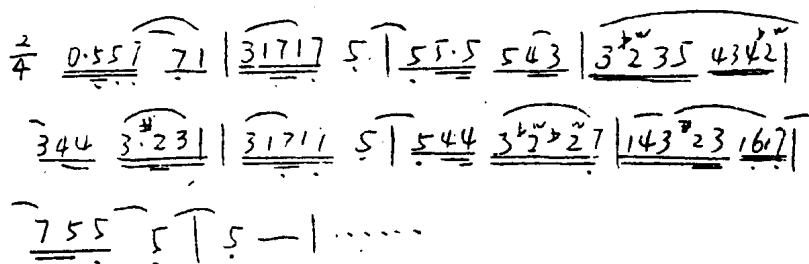 2/4 0·557 71 | 31717 5 | 55·5 543 | 3♭2 35 434♭2 |
344 3·#231 | 31711 5 | 544 3♭2♭27 | 143#23 1617 |
755 5 | 5 — | ······